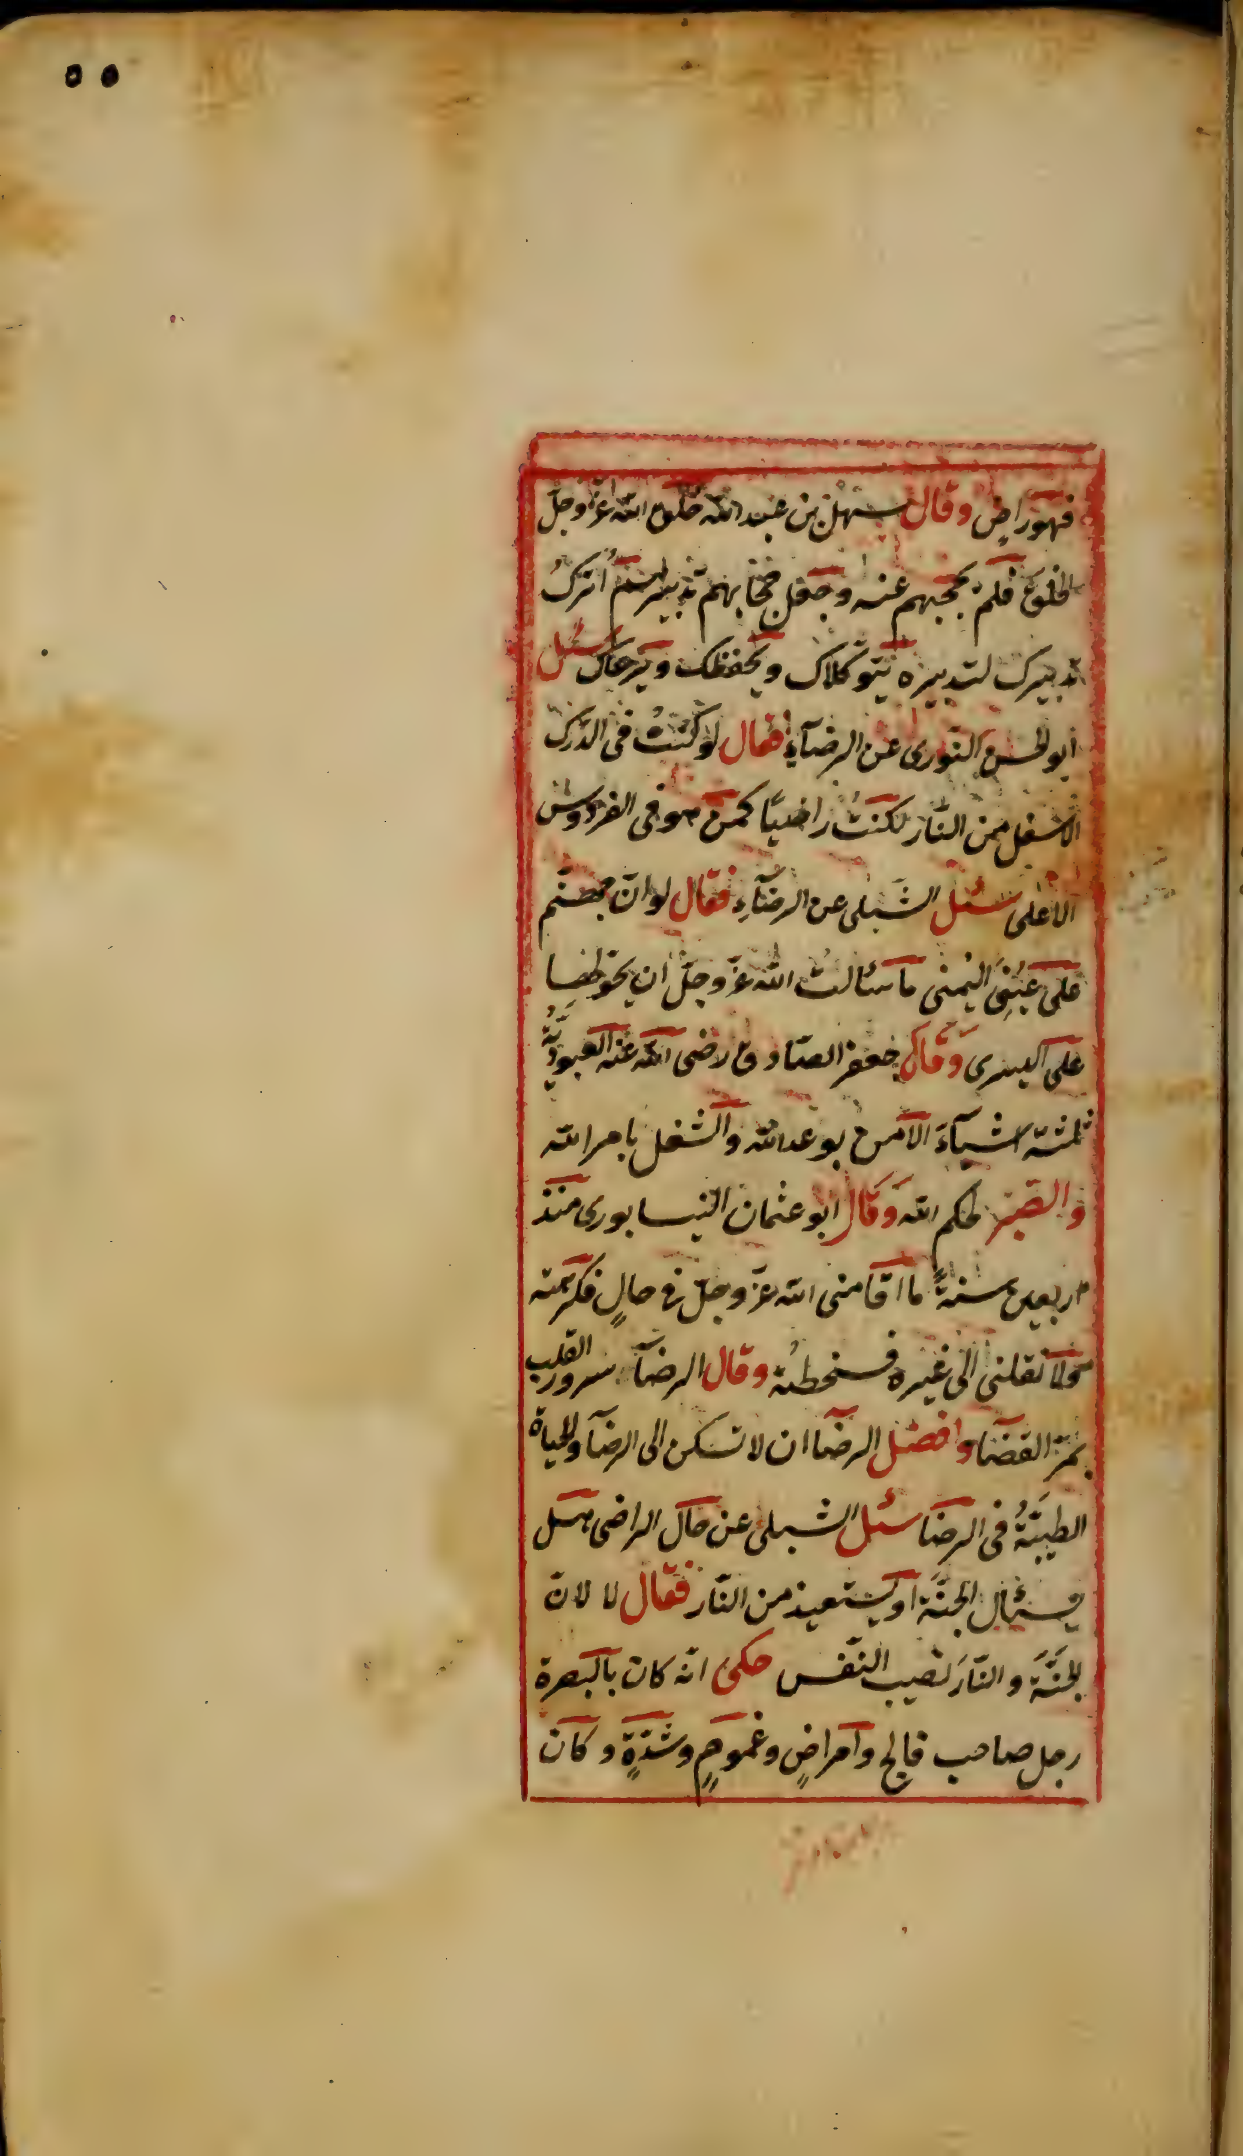 ٥٥
فهو راض وقال سهل بن عبد الله خلق الله عزّ وجلّ
الخلق فلم يحجبهم عنه وجعل حجابهم تدبيرهم اترك
تدبيرك لتدبيره يتوكلاك ويحفظك ويرعاك سئل
ابو الحسن النوري عن الرضاء فقال لو كنتُ في الدرك
الاسفل من النار لكنتُ راضيًا كمن هو في الفردوس
الاعلى سئل الشبلي عن الرضاءِ فقال لو انّ جهنم
على عينى اليمنى ما سئالت الله عزّ وجلّ ان يحولها
على اليسرى وقال جعفر الصادق رضى الله عنه العبوديّةُ
ثلثة اشياءَ الامن بوعد الله والشغل بامر الله
والصبر لحكم الله وقال ابو عثمان النيسابورى منذ
اربعين سنةً ما اقامنى الله عزّ وجلّ فى حالٍ فكرهته
ولا نقلنى الى غيره فسخطتُه وقال الرضآ سرور القلب
بمرّ القضآ وافضل الرضآ ان لا تسكن الى الرضآ والحياة
الطيّبةُ في الرضا سئل الشبلى عن حال الراضى هل
يسئال الجنّة او يستعيذ من النّار فقال لا لانّ
الجنَّةَ والنّارَ نصيب النّفس حكى انّه كان بالبصرة
رجل صاحب فالج وامراضٍ وغمومٍ وشدّةٍ وكان